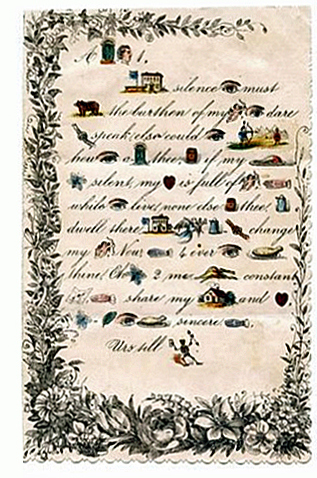 A 1,
silence must
the burthen of my dare
speak, else could
how a thee, if my
silent, my is full of
while live, none else thee,
dwell there change
my Now 4 ever
thine, Oh 2 me, constant
share my and
sincere
Urs till